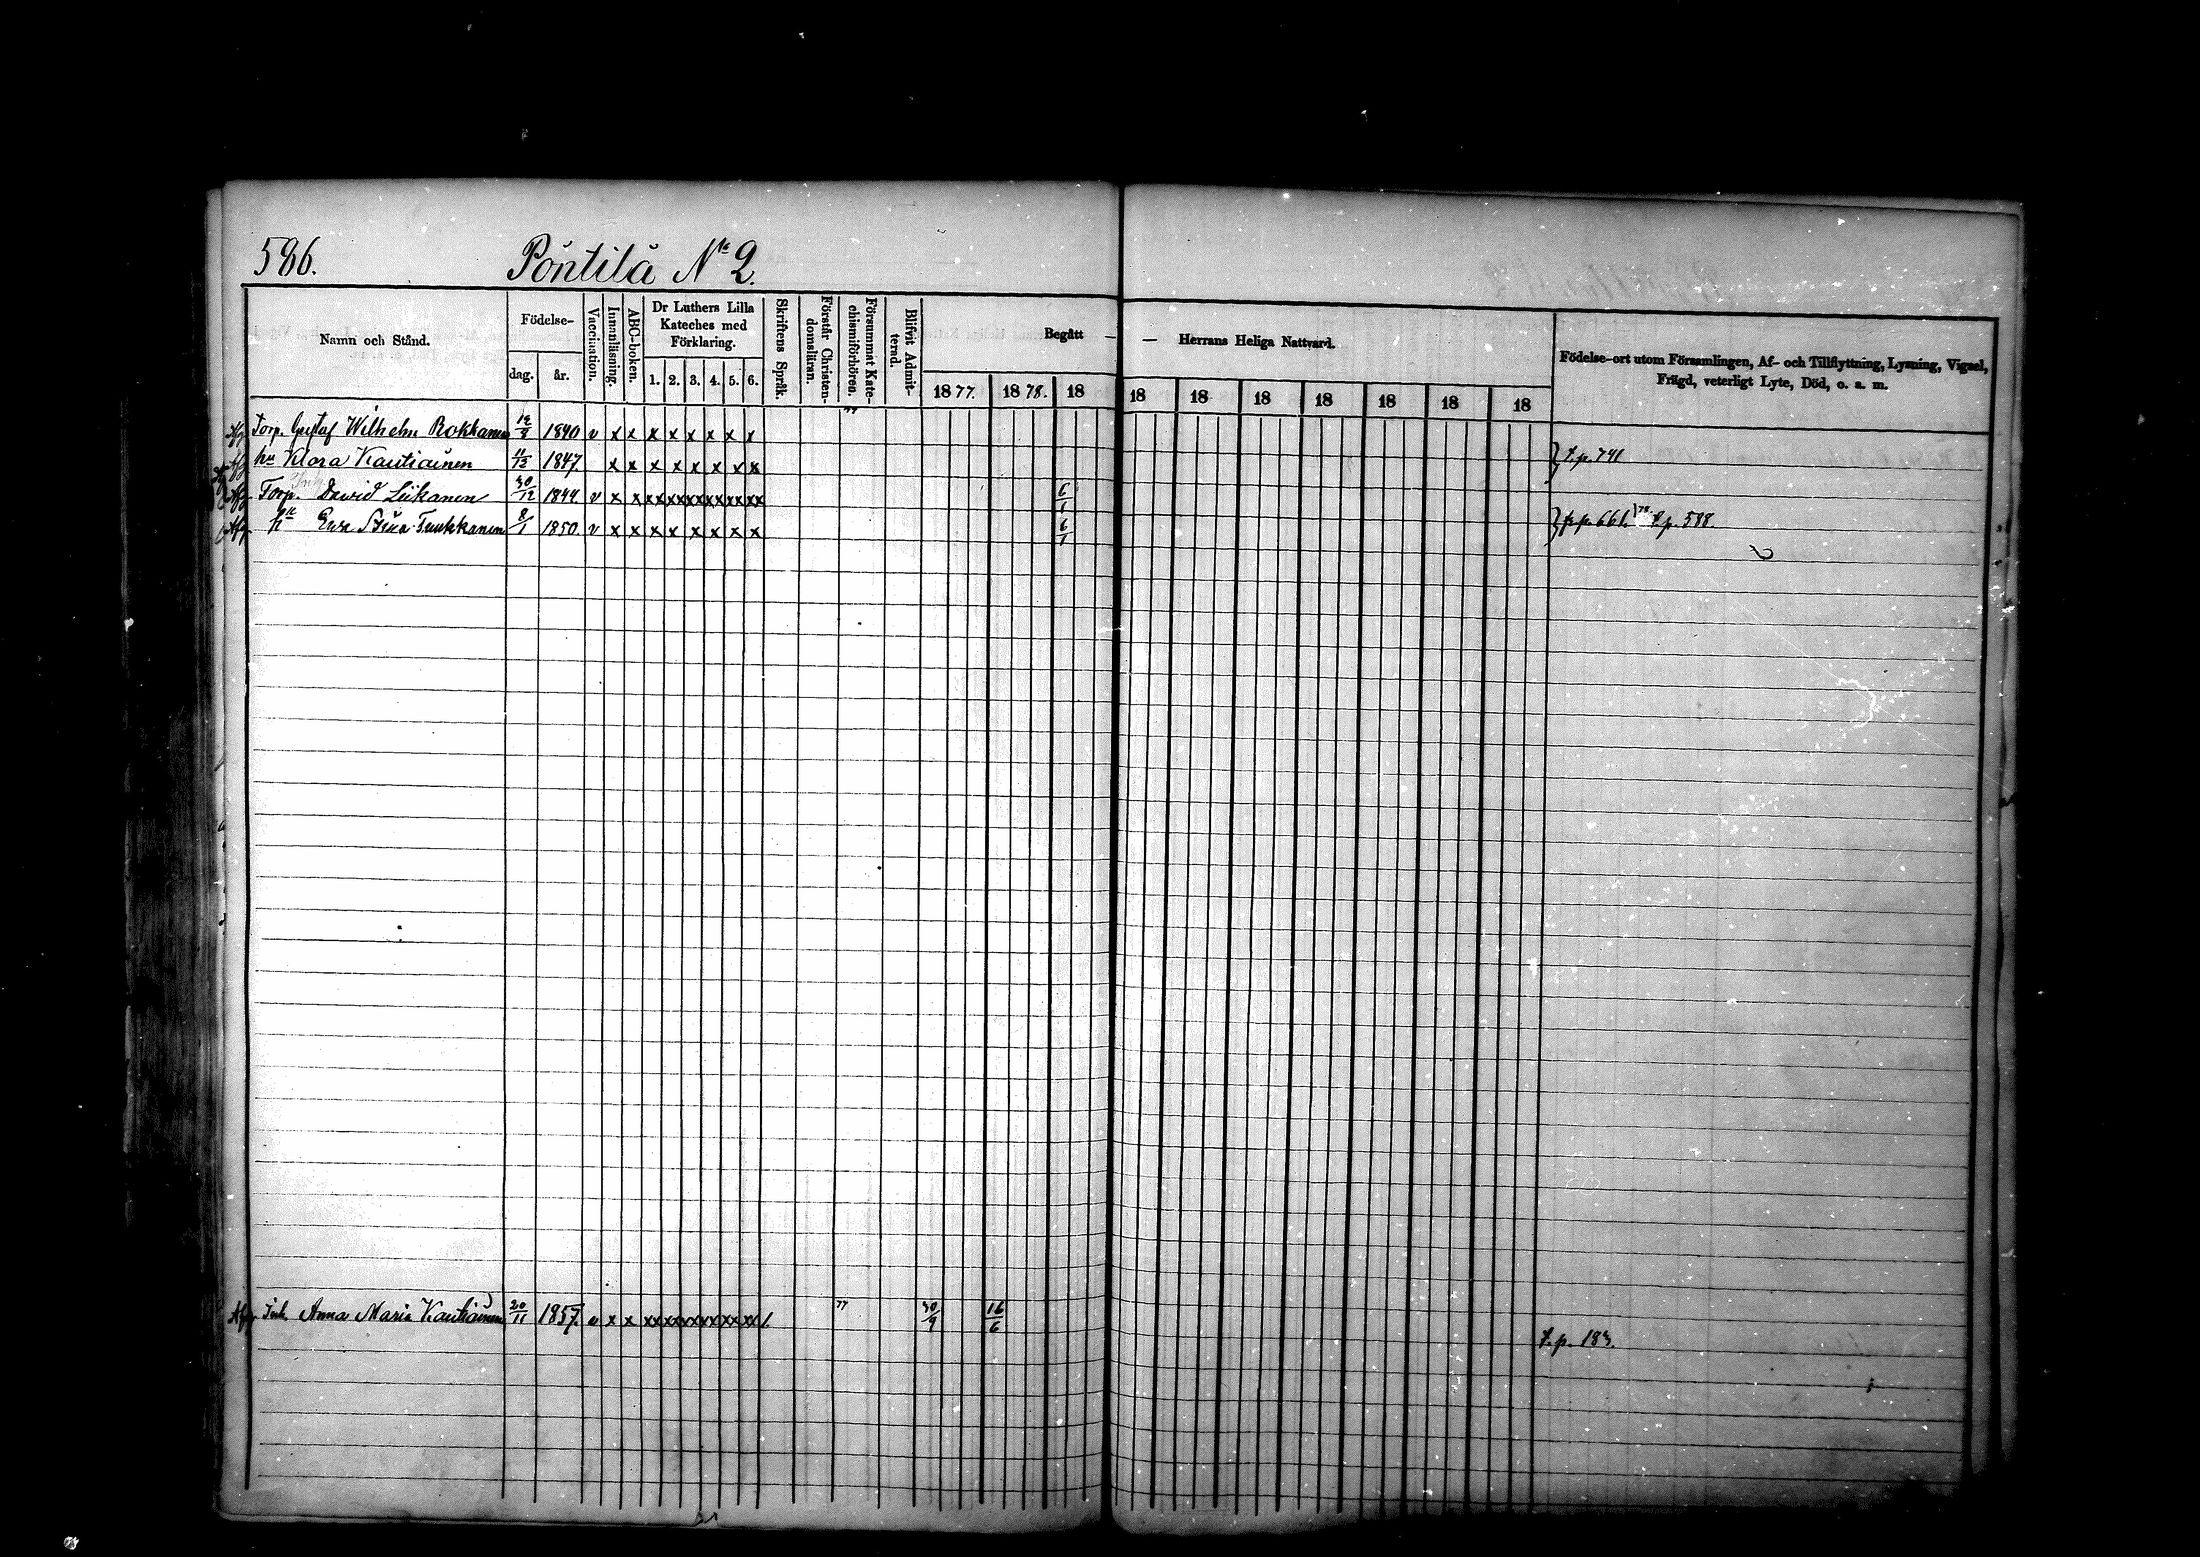 586. Pöntilä No 2.
Namn och Stånd.
Födelse-
dag. år.
Vaccination.
Innanläsning.
ABC-boken.
Dr Luthers Lilla Kateches med Förklaring.
1. 2. 3. 4. 5. 6.
Skriftens Språk.
Förstår Christendomsläran.
Försummat Katechismiförhören.
Blifvit Admitterad.
Begått — — Herrans Heliga Nattvard.
1877. 1878. 18 18 18 18 18 18 18 18
Födelse-ort utom Församlingen, Af- och Tillflyttning, Lysning, Vigsel,
Frägd, veterligt Lyte, Död, o. a. m.
77
Torp. Gustaf Wilhelm Rokkanen 1840 v x x x x x x x x
hu Klara Kautiainen 11/12 1847. x x x x x x x x } t.p. 741
Torp. David Liikanen 30/12 1844 v x x xx xx xx xx xx xx 6/1
hu Eva Stina Tuukkanen 8/1 1850. v x x x x x x x x 6/1 } p. 661. t p. 588.
Afg. Anna Maria Kautiainen 20/11 1857. v x x xx xx xx xx xx xx 77 30/9 16/6
t.p. 183.